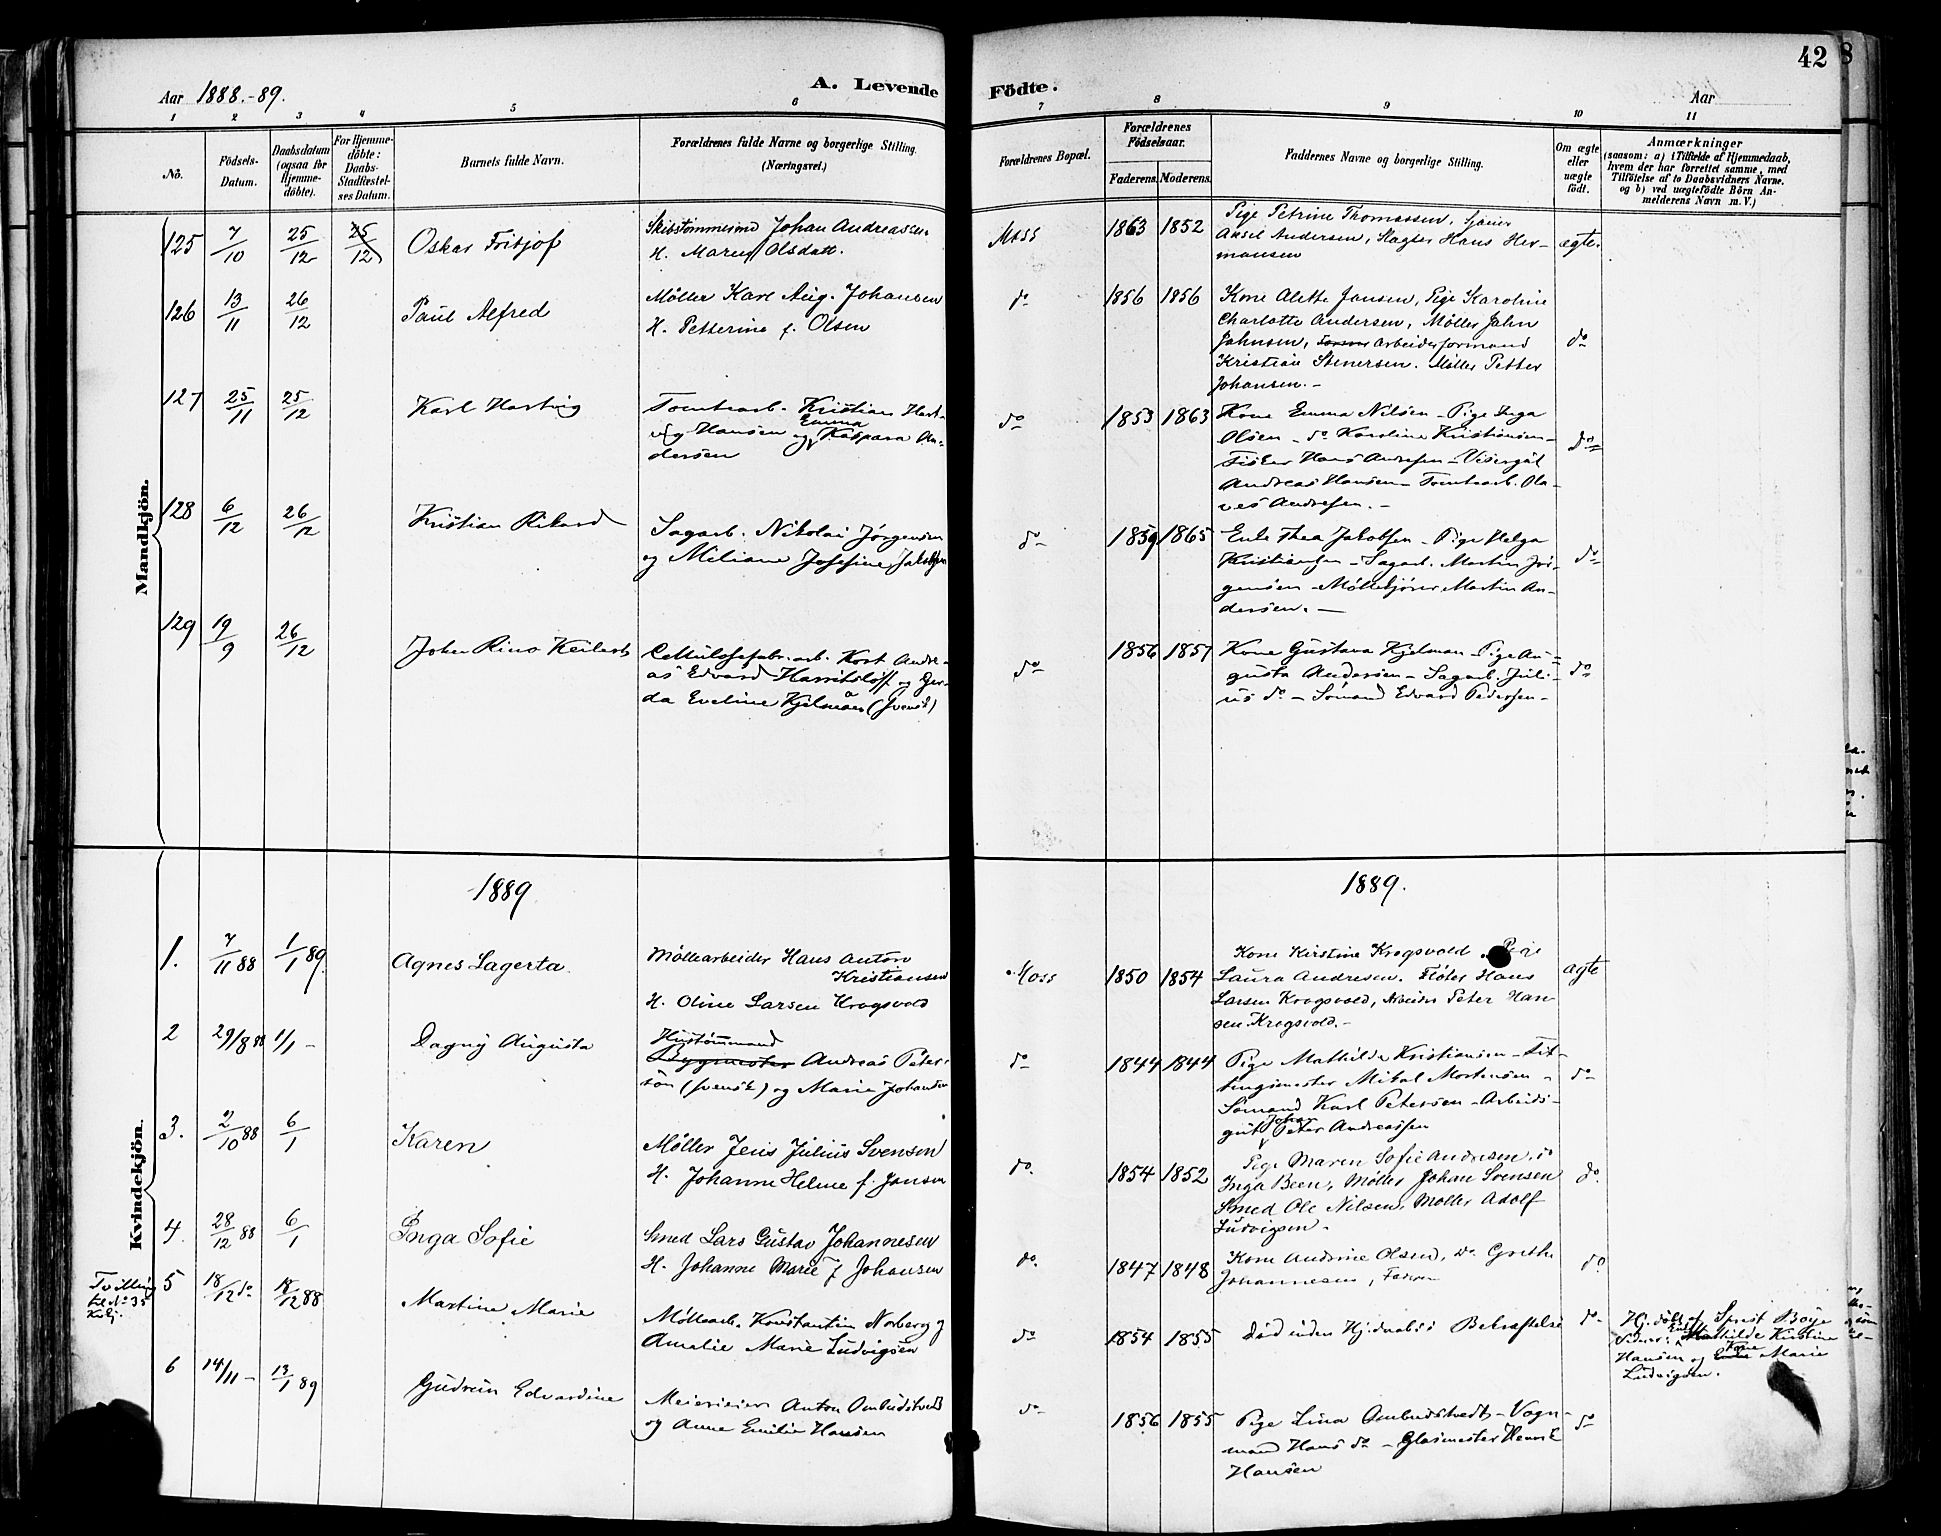 42
Aar 1888.-89.
A. Levende
Födte.
Aar
1 2 3 4 5 6 7 8 9 10 11
No.
Födsels-Datum.
Daabsdatum (ogsaa for Hjemme-döbte).
For Hjemme-döbte: Daabs-Stadfæstel-ses Datum.
Barnets fulde Navn.
Forældrenes fulde Navne og borgerlige Stilling.
(Næringsvei.)
Forældrenes Bopæl.
Forældrenes Födselsaar.
Faderens. Moderens.
Faddernes Navne og borgerlige Stilling.
Om ægte eller uægte födt.
Anmærkninger
(saasom: a) i Tilfælde af Hjemmedaab,
hvem der har forrettet samme, med
Tilföielse af to Daabsvidners Navne.
og b) ved uægtefödte Börn An-
melderens Navn m. V.)
Mandkjön.
125 7/10 25/12 25/12 Oskar Fritjof
Skibstømmermd Johan Andreassen
H. Maren Olsdatt.
Moss 1863 1852
Pige Petrine Thomassen, Sjauer
Aksel Andersen, Slagter Hans Her-
mansen
ægte
126 13/11 26/12 Paul Alfred
Møller Karl Aug. Johansen
H. Petterine f. Olsen
do 1856 1856
Kone Alette Jansen, Pige Karoline
Charlotte Andersen, Møller John
Johnsen, Arbeidsformand
Kristian Stenersen. Møller Petter
Johansen.-
do
127 25/11 25/12 Karl Hartvig
Tomtearb. Kristian Hart-
vig Hansen og Emma Kaspara An-
dersen
do 1853 1863
Kone Emma Nilsen - Pige Inga
Olsen - do Karoline Kristiansen -
Fisker Hans Andresen - Visergut
Andreas Hansen - Tomtearb. Ola-
ves Andresen. -
do
128 6/12 26/12 Kristian Rikard
Sagarb. Nikolai Jørgensen
og Miliane Josefine Jakobsen
do 1859 1865
Enke Thea Jakobsen - Pige Helga
Kristiansen - Sagarb. Martin Jør-
gensen - Møllekjører Martin An-
dersen. -
do
129 19/9 26/12 John Rino Keilert
Cellulosefabr. arb. Kort Andre-
as Edvard Harritsløff og Ger-
da Eveline Kjelman (svensk)
do 1856 1857
Kone Gustava Kjelman - Pige Au-
gusta Andersen - Sagarb. Juli-
us do - Sømand Edvard Pedersen -
do
1889
1889.
Kvindekjön.
1. 7/11 88 1/1 89. Agnes Lagerta.
Møllearbeider Hans Anton
Kristiansen
H. Oline Larsen Krogsvold
Moss 1850 1854
Kone Kirstine Krogsvold, Pige
Laura Andresen. Fløter Hans
Larsen Krogsvold, Peter Han
sen Krogsvold.-
ægte
2 29/8 88 1/1 - Dagny Augusta
Hustømmand
Andreas Peter-
sön (svensk) og Marie Johansen
do 1844 1844
Pige Mathilde Kristiansen - Fit-
tingsmester Mikal Mortensen -
Sømand Karl Petersen - Arbeids-
gut Johan Peter Andreassen
do
3. 2/10 88 6/1 Karen
Møller Jens Julius Svensen
H. Johanne Helene f. Jansen
do. 1854 1852
Pige Maren Sofie Andresen, do
Inga Been, Møller Johan Svensen
Smed Ole Nilsen, Møller Adolf
Ludvigsen.
do.
4. 28/12 88 6/1 Inga Sofie
Smed Lars Gustav Johannesen
H. Johanne Marie f Johansen
do. 1847 1848
Kone Andrine Olsen, do Grethe
Johannesen, Faderen
do.
Tvilling
til No 35
5 18/12 do 18/12 88 Martine Marie
Møllearb. Konstantin Norberg og
Amalie Marie Ludvigsen
do 1854 1855
Død uden Hj.daabs Bekræftelse
do
Hj. døbt af Sprest Bøye
Vidner: Enke Mathilde Kirstine
Hansen og Kone Marie
Ludvigsen.
6 14/11 - 13/1 89 Gudrun Edvardine
Meierieier Anton Ombudstvedt
og Anne Emilie Hansen
do 1856 1855
Pige Lina Ombudstvedt - Vogn-
mand Hans do - Glasmester Henrik
Hansen
do